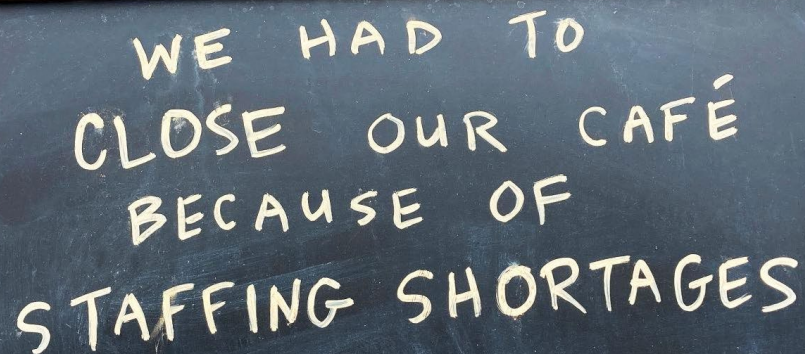 WE HAD TO
CLOSE OUR CAFÉ
BECAUSE OF
STAFFING SHORTAGES